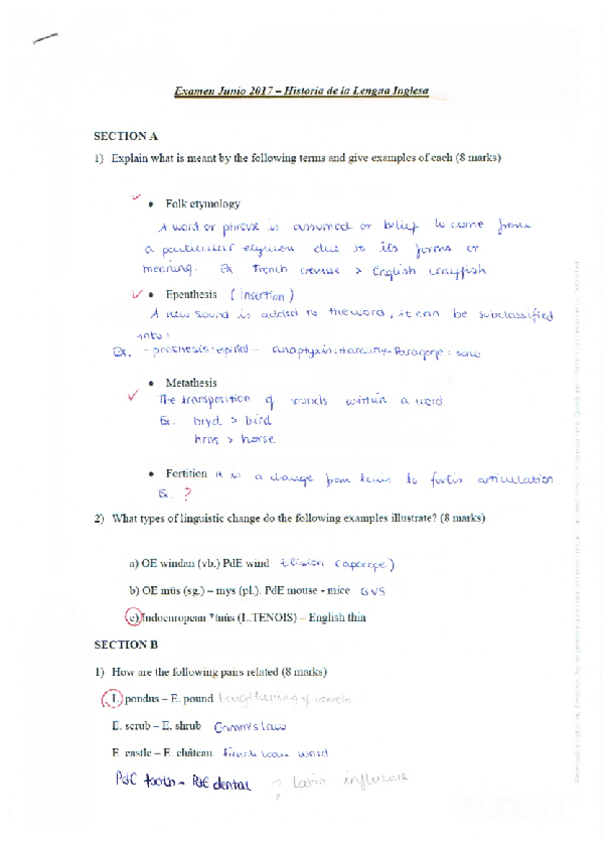 Examen Junio 2017 – Historia de la Lengua Inglesa
SECTION A
1) Explain what is meant by the following terms and give examples of each (8 marks)
• Folk etymology
A word or phrase is assumed or belief to come from
a particular etymon due to its forms or
meaning. Ex French crevisse > English crayfish
• Epenthesis (insertion)
A new sound is added to the word, it can be subclassified
into:
Ex. - prosthesis: - anaptyxis: - Paragoge:
• Metathesis
The transposition of sounds within a word
Ex. bryd > bird
hros > horse
• Fortition it is a change from lenis to fortis articulation
Ex. ?
2) What types of linguistic change do the following examples illustrate? (8 marks)
a) OE windan (vb.) PdE wind Elision (apocope)
b) OE mūs (sg.) – mys (pl.). PdE mouse - mice GVS
c) Indoeuropean *tnús (L.TENOIS) – English thin
SECTION B
1) How are the following pairs related (8 marks)
L. pondus – E. pound Lengthening of vowels
E. scrub – E. shrub Grimm's Law
E. castle – E. château French loan word
PdE tooth - PdE dental → Latin influence